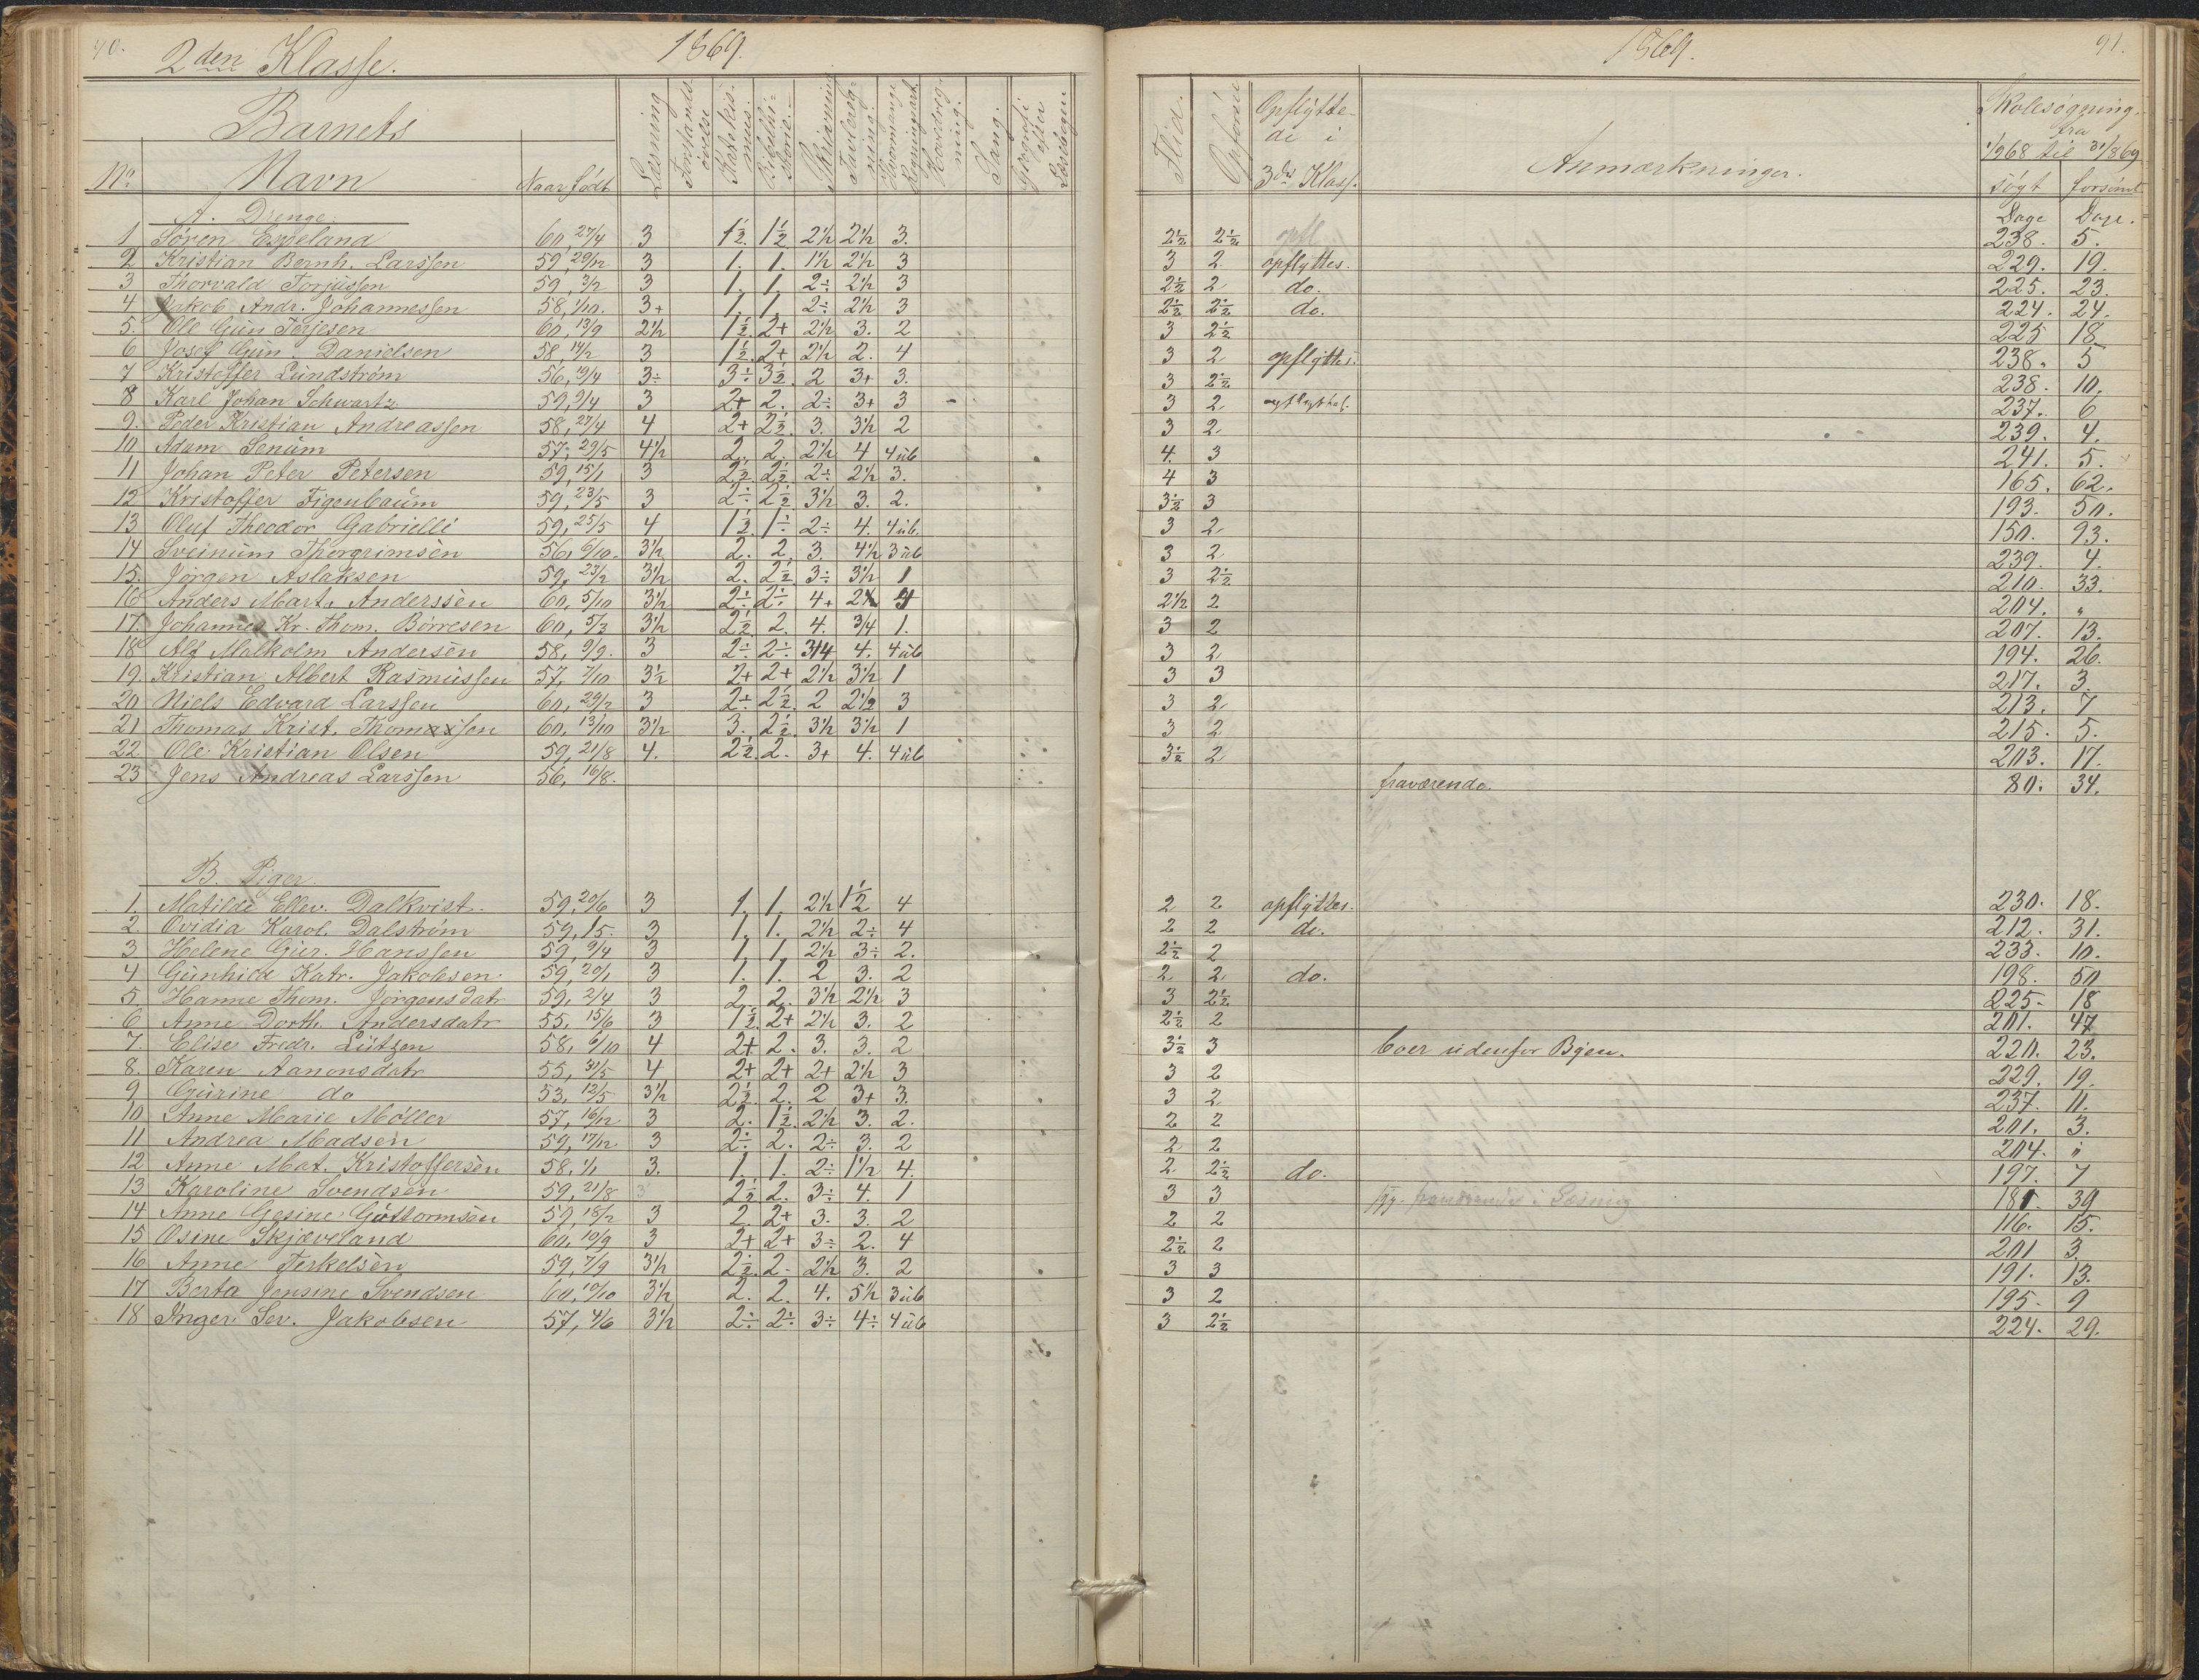 2den Klasse. 1869.
Barnets
Nr. Navn Naar født Læsning Forstandsøvelse Katekismus. Bibelhistorie. Skrivning Tavleregning. Hvormange Regningsart. Hovedregning. Sang. Geografi efter Læsebogen
A. Drenge.
1 Søren Espeland 60, 27/4 3 1½. 1½. 2½ 2½ 3.
2 Kristian Bernh. Larssen 59, 29/12 3 1. 1. 1½ 2½ 3
3 Thorvald Torjussen 59, 3/2 3 1. 1. 2÷ 2½ 3
4 Jakob Andr. Johannessen 58, 1/10. 3+ 1. 1. 2÷ 2½ 3
5. Ole Gun Terjesen 60, 13/9 2½ 1½ 2+ 2½ 3. 2
6 Josef Gun. Danielsen 58, 14/2 3 1½. 2+ 2½ 2. 4
7 Kristoffer Lundstrøm 56, 19/4 3÷ 3÷ 3½. 2 3+ 3.
8 Karl Johan Schwartz 59, 9/4 3 2+ 2. 2÷ 3+ 3
9. Peder Kristian Andreassen 58, 27/4 4 2+ 2½ 3. 3½ 2
10 Adam Senum 57, 29/5 4½ 2. 2. 2½ 4 4 üb
11 Johan Peter Petersen 59, 15/1 3 2½. 2½. 2÷ 2½ 3.
12 Kristoffer Figenbaum 59, 23/5 3 2÷ 2½ 3½ 3. 2.
13 Oluf Theodor Gabrielli 59, 25/5 4 1½ 1÷ 2÷ 4. 4 üb.
14 Sveinum Thorgrimsen 56, 6/10. 3½ 2. 2. 3. 4½ 3 üb
15. Jørgen Aslaksen 59, 23/2 3½ 2. 2½ 3÷ 3½ 1
16 Anders Mart. Anderssen 60, 5/10 3½ 2÷ 2÷ 4+
17. Johannes Kr. Thom. Børresen 60, 5/3 3½ 2½ 2. 4. 3/4 1.
18 Alf Malkolm Andersen 58, 9/9. 3 2÷ 2÷. 3/4 4. 4 üb
19. Kristian Albert Rasmussen 57, 7/10 3½ 2+ 2+ 2½ 3½ 1
20 Niels Edvard Larssen 60, 29/2 3 2÷ 2½. 2 2½ 3
21 Thomas Krist. Thomassen 60, 13/10 3½ 3. 2½. 3½ 3½ 1
22. Ole Kristian Olsen 59, 21/8 4. 2½. 2. 3+ 4. 4 üb
23 Jens Andreas Larssen 56, 16/8.
B. Piger.
1. Matilde Ellev. Dalkvist. 59, 20/6 3 1. 1. 2½ 1½ 4
2. Ovidia Karol. Dalstrøm 59, 1/5. 3 1. 1. 2½ 2÷ 4
3 Helene Gur. Hanssen 59, 9/4 3 1. 1. 2½ 3÷ 2.
4 Gunhild Katr. Jakobsen. 59, 20/1 3 1. 1. 2 3. 2
5. Hanne Thom. Jørgensdatr 59, 2/4 3 2. 2. 3½ 2½ 3
6 Anne Dorth. Andersdatr 55, 15/6 3 1½. 2+ 2½ 3. 2
7. Elise Fredr. Lützen 58, 6/10 4 2+ 2. 3. 3. 2
8. Karen Aanonsdatr 55, 31/5 4 2+ 2+ 2+ 2½ 3
9 Gurine do 53, 12/5 3½ 2½. 2. 2 3+ 3.
10 Anne Marie Møller 57, 16/12 3 2. 1½. 2½ 3. 2.
11 Andrea Madsen 59, 17/12. 3 2÷ 2. 2÷ 3. 2
12 Anne Mat. Kristoffersen 58, 1/1 3. 1. 1. 2÷ 1½ 4.
13 Karoline Svendsen 59, 21/8 3 2½ 2. 3÷ 4. 1
14 Anne Gesine Guttormsen 59, 18/2 3 2. 2+ 3. 3. 2
15 Osine Skjæveland 60, 10/9 3 2+ 2+ 3÷ 2. 4
16 Anne Terkelsen 59, 7/9 3½ 2½. 2. 2½ 3. 2
17 Berta Jensine Svendsen 60, 10/10 3½ 2. 2. 4. 5½ 3 üb
18 Inger Ser. Jakobsen 57, 4/6 3½ 2÷ 2÷ 3÷ 4÷ 4 üb
1869. 91.
Flid. Opførsel Opflyttede i 3die Klasse. Anmærkninger. Skolesøgning fra 1/9 68 til 31/8 69
søgt forsømt
Dage Dage.
2½ 2½ opfl 238. 5.
3 2 opflyttes. 229. 19.
2½ 2 do. 225. 23.
2½ 2½ do. 224. 24.
3 2½ 225 18
3 2 opflyttes. 238. 5
3 2½ 238. 10.
3 2 237. 6
3 2 239. 4.
4. 3 241. 5.
4 3 165. 62.
3½ 3 193. 50.
3 2 150. 93.
3 2 239. 4.
3 2½ 210. 33.
2½ 2 204. "
3 2 207. 13.
3 2 194. 26.
3 3 217. 3.
3 2 213. 7
3 2 215. 5.
3½ 2 203. 17.
fraværende. 80. 34.
2 2 opflyttes. 230. 18.
2 2 do. 212. 31.
2½ 2 233. 10.
2 2 do. 198. 50
3 2½ 225. 18
2½ 2 201. 47
3½ 3 boer udenfor Byen. 220. 23.
3 2 229. 19.
3 2 237. 11.
2 2 201. 3.
2 2 204. "
2 2½ do. 197. 7
3 3 39
2 2 116. 15.
2½ 2 201 3.
3 3 191. 13.
3 2 195. 9
3 2½ 224. 29.